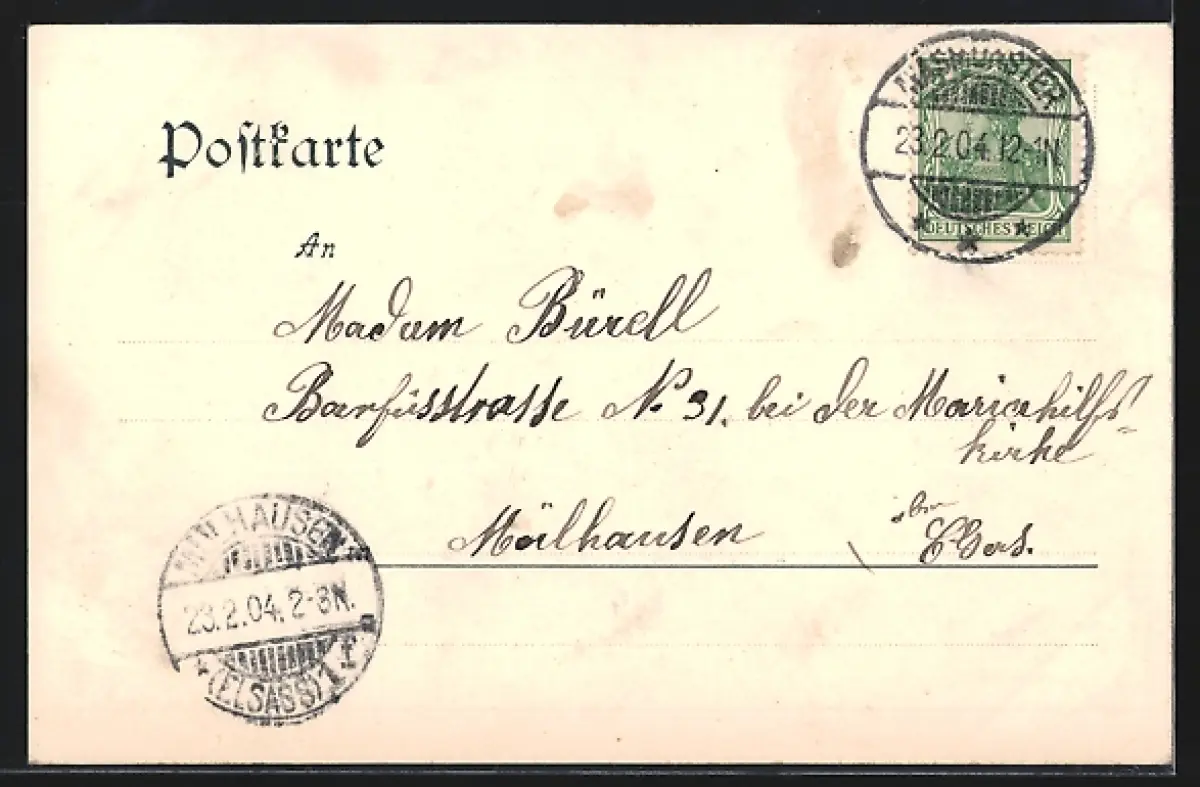 Postkarte
MASMÜNSTER
23.2.04.12-1N.
DEUTSCHES REICH
An
Madam Bürell
Barfüsstrasse No 31. bei der Mariahilfs=
kirche
Mülhausen
Elsas.
MÜLHAUSEN
23.2.04. 2-3N.
(ELSASS) 1 f